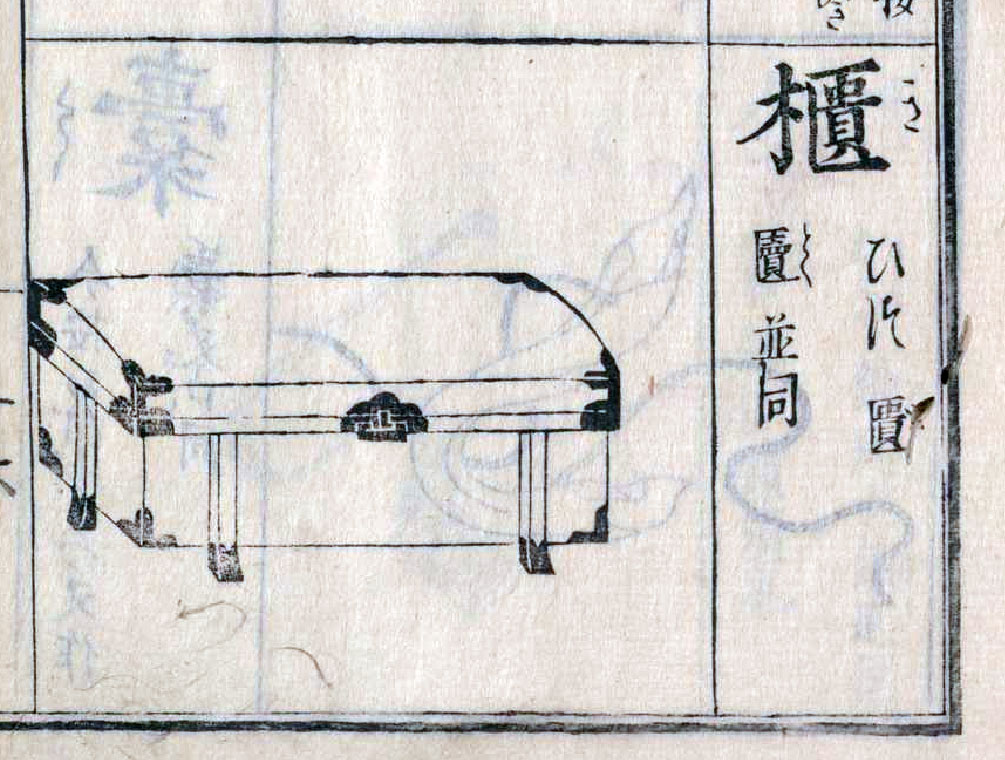 櫃 き
ひつ 匱
匵 とく 並同